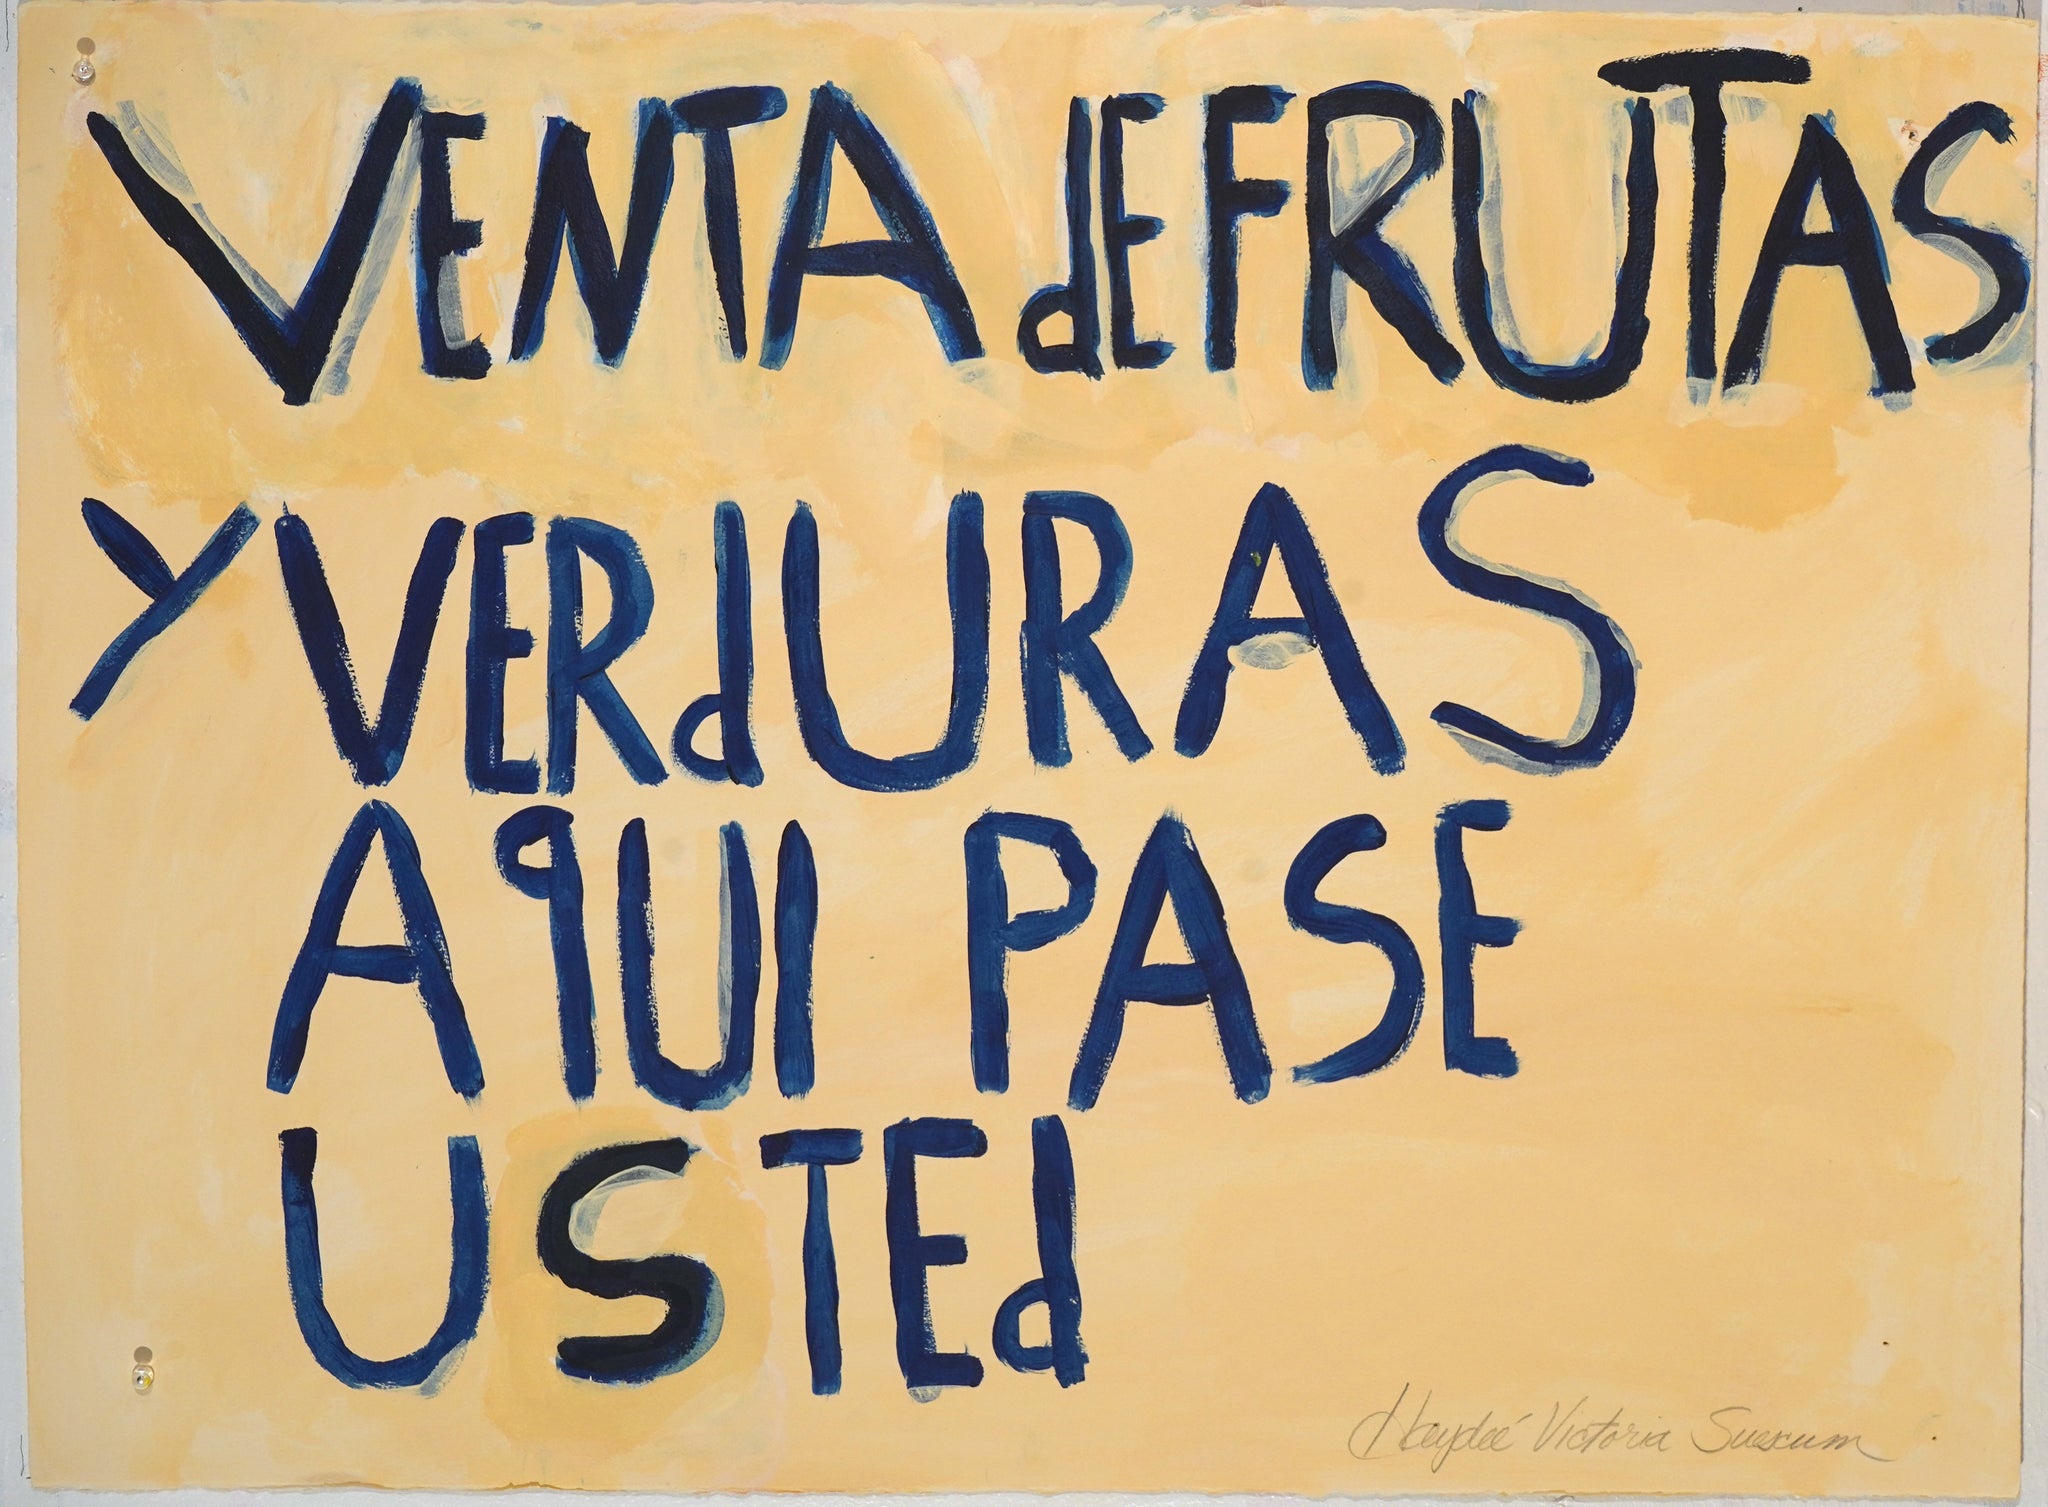 VENTA dE FRUTAS
Y VERdURAS
AqUI PASE
USTEd
Haydeé Victoria Suescum